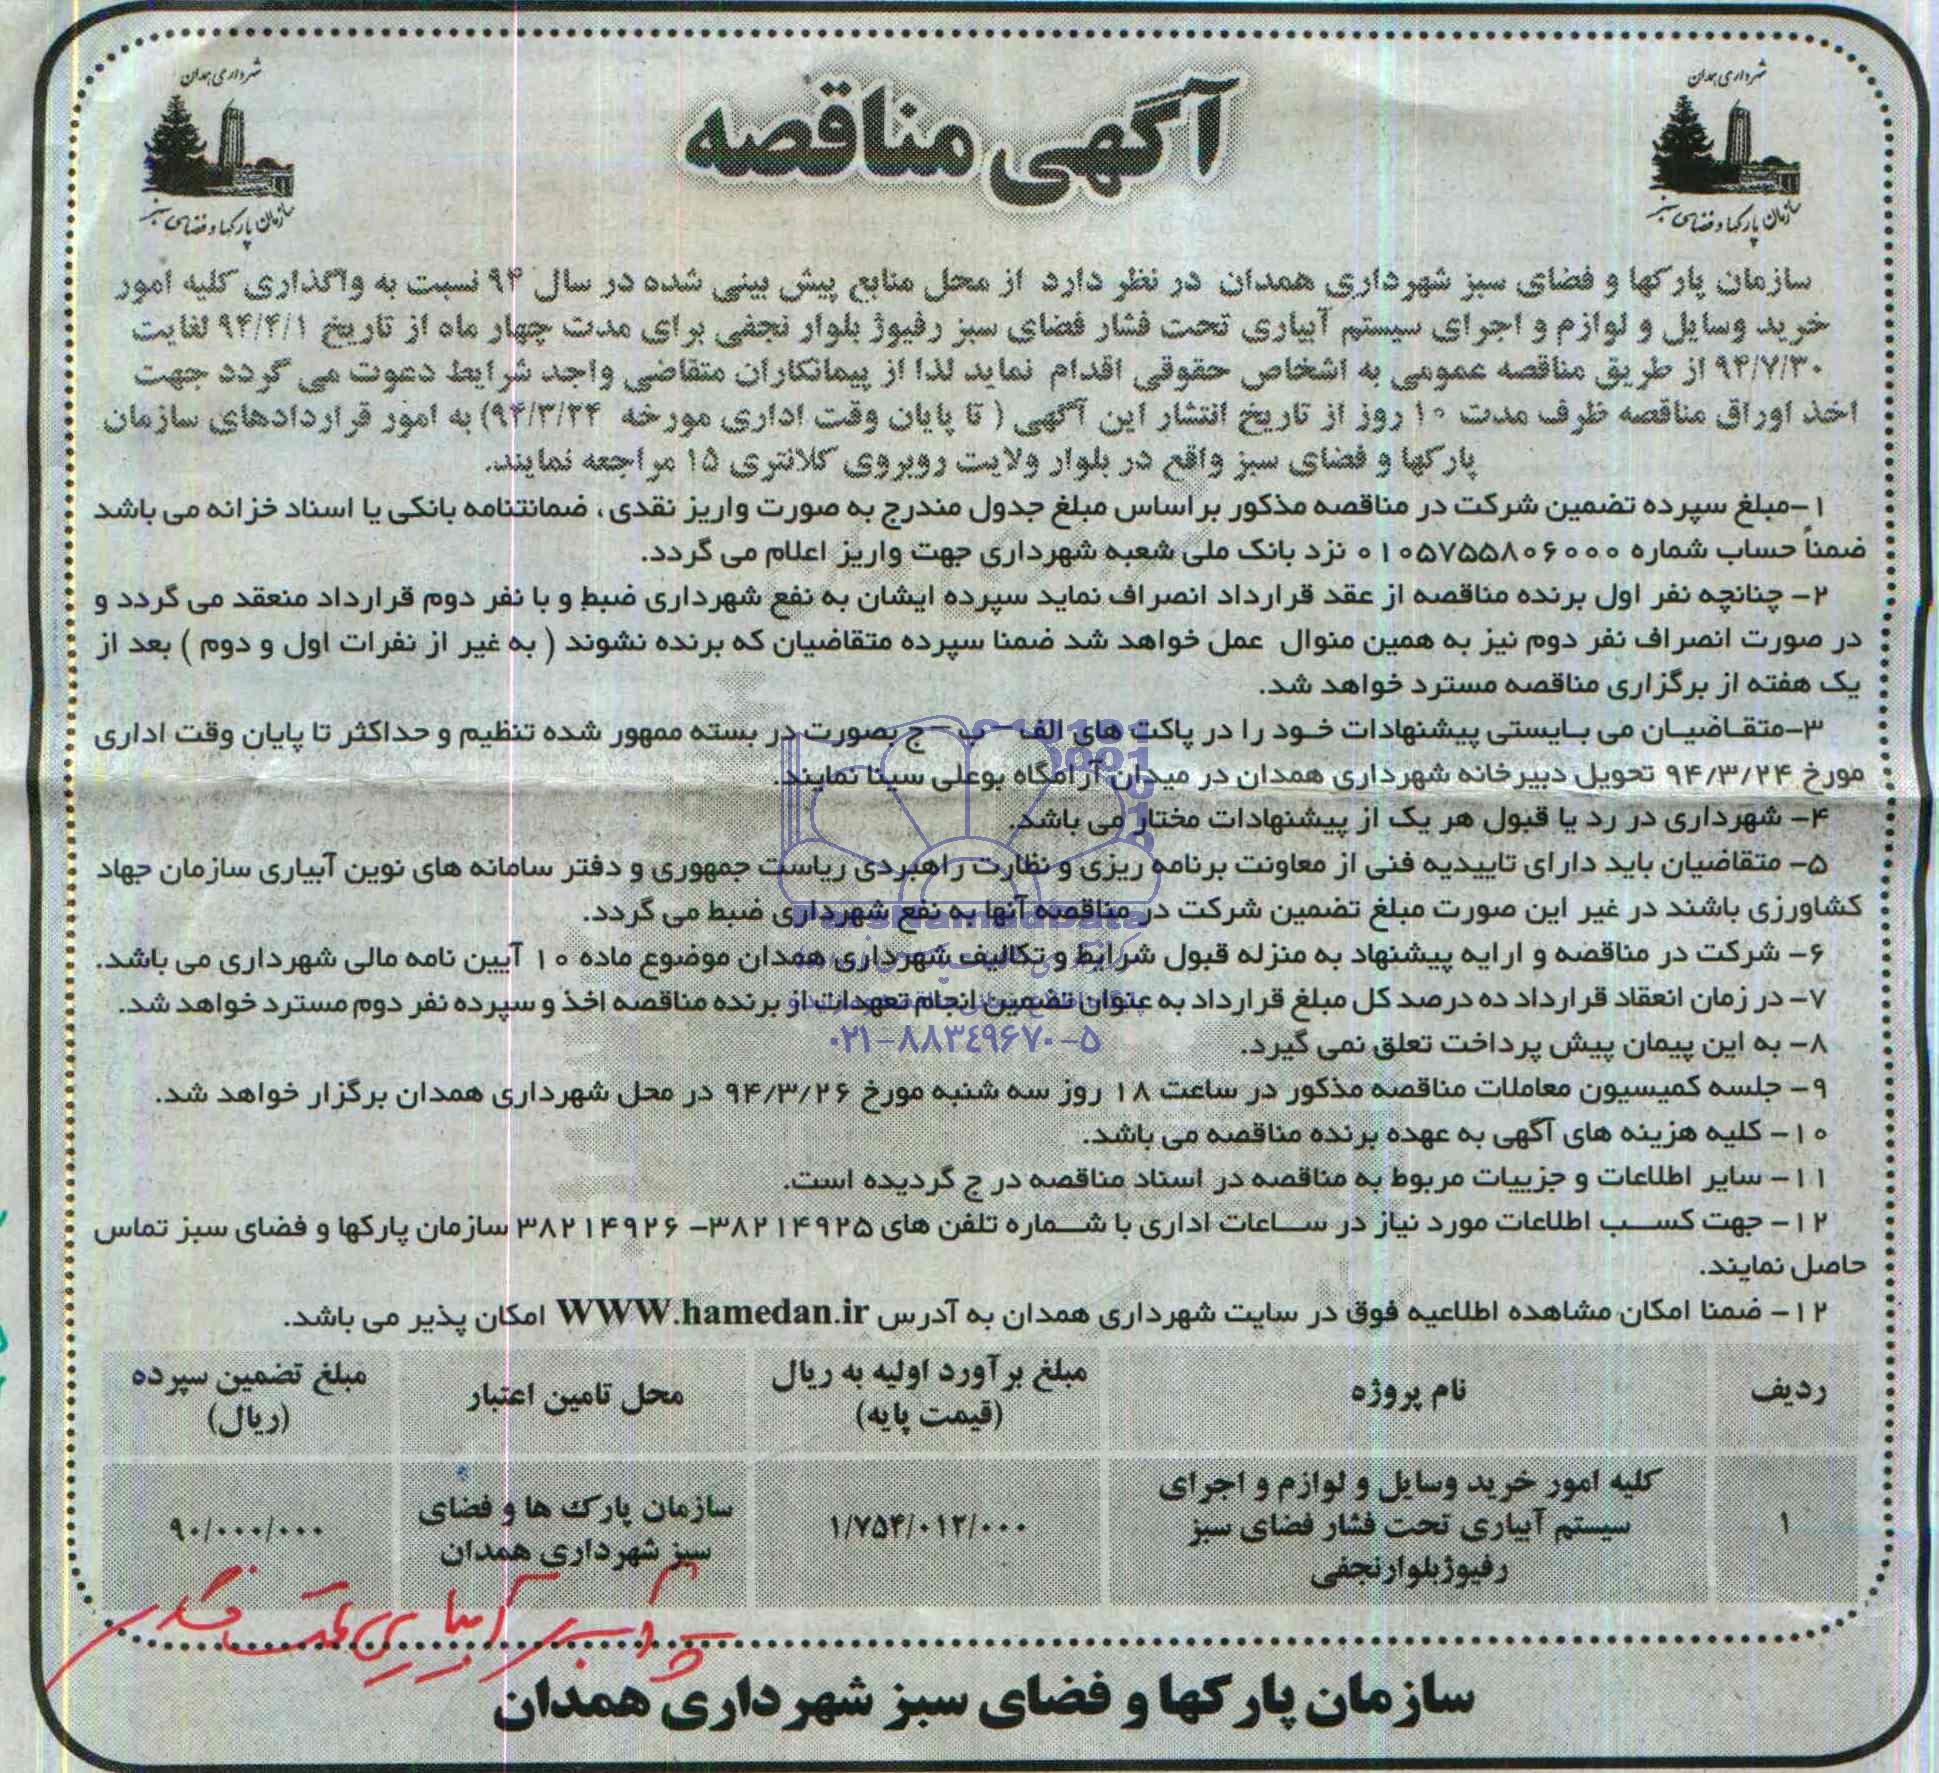 شهرداری همدان
سازمان پارکها و فضای سبز
آگهی مناقصه
شهرداری همدان
سازمان پارکها و فضای سبز
سازمان پارکها و فضای سبز شهرداری همدان در نظر دارد از محل منابع پیش بینی شده در سال ۹۴ نسبت به واگذاری کلیه امور
خرید وسایل و لوازم و اجرای سیستم آبیاری تحت فشار فضای سبز رفیوژ بلوار نجفی برای مدت چهار ماه از تاریخ ۹۴/۴/۱ لغایت
۹۴/۷/۳۰ از طریق مناقصه عمومی به اشخاص حقوقی اقدام نماید لذا از پیمانکاران متقاضی واجد شرایط دعوت می گردد جهت
اخذ اوراق مناقصه ظرف مدت ۱۰ روز از تاریخ انتشار این آگهی ( تا پایان وقت اداری مورخه ۹۴/۳/۲۴) به امور قراردادهای سازمان
پارکها و فضای سبز واقع در بلوار ولایت روبروی کلانتری ۱۵ مراجعه نمایند.
۱-مبلغ سپرده تضمین شرکت در مناقصه مذکور براساس مبلغ جدول مندرج به صورت واریز نقدی ، ضمانتنامه بانکی یا اسناد خزانه می باشد
ضمناً حساب شماره ۰۱۰۵۷۵۵۸۰۶۰۰۰ نزد بانک ملی شعبه شهرداری جهت واریز اعلام می گردد.
۲- چنانچه نفر اول برنده مناقصه از عقد قرارداد انصراف نماید سپرده ایشان به نفع شهرداری ضبط و با نفر دوم قرارداد منعقد می گردد و
در صورت انصراف نفر دوم نیز به همین منوال عمل خواهد شد ضمنا سپرده متقاضیان که برنده نشوند ( به غیر از نفرات اول و دوم ) بعد از
یک هفته از برگزاری مناقصه مسترد خواهد شد.
۳-متقاضیان می بایستی پیشنهادات خود را در پاکت های الف - ب - ج بصورت در بسته ممهور شده تنظیم و حداکثر تا پایان وقت اداری
مورخ ۹۴/۳/۲۴ تحویل دبیرخانه شهرداری همدان در میدان آرامگاه بوعلی سینا نمایند.
۴- شهرداری در رد یا قبول هر یک از پیشنهادات مختار می باشد.
۵- متقاضیان باید دارای تاییدیه فنی از معاونت برنامه ریزی و نظارت راهبردی ریاست جمهوری و دفتر سامانه های نوین آبیاری سازمان جهاد
کشاورزی باشند در غیر این صورت مبلغ تضمین شرکت در مناقصه آنها به نفع شهرداری ضبط می گردد.
۶- شرکت در مناقصه و ارایه پیشنهاد به منزله قبول شرایط و تکالیف شهرداری همدان موضوع ماده ۱۰ آیین نامه مالی شهرداری می باشد.
۷- در زمان انعقاد قرارداد ده درصد کل مبلغ قرارداد به عنوان تضمین انجام تعهدات از برنده مناقصه اخذ و سپرده نفر دوم مسترد خواهد شد.
۰۲۱-۸۸۳۴۹۶۷۰-۵
۸- به این پیمان پیش پرداخت تعلق نمی گیرد.
۹- جلسه کمیسیون معاملات مناقصه مذکور در ساعت ۱۸ روز سه شنبه مورخ ۹۴/۳/۲۶ در محل شهرداری همدان برگزار خواهد شد.
۱۰- کلیه هزینه های آگهی به عهده برنده مناقصه می باشد.
۱۱- سایر اطلاعات و جزییات مربوط به مناقصه در اسناد مناقصه در ج گردیده است.
۱۲- جهت کسب اطلاعات مورد نیاز در ساعات اداری با شماره تلفن های ۳۸۲۱۴۹۲۵- ۳۸۲۱۴۹۲۶ سازمان پارکها و فضای سبز تماس
حاصل نمایند.
۱۲- ضمنا امکان مشاهده اطلاعیه فوق در سایت شهرداری همدان به آدرس WWW.hamedan.ir امکان پذیر می باشد.
ردیف نام پروژه مبلغ برآورد اولیه به ریال (قیمت پایه) محل تامین اعتبار مبلغ تضمین سپرده (ریال)
۱ کلیه امور خرید وسایل و لوازم و اجرای سیستم آبیاری تحت فشار فضای سبز رفیوژبلوارنجفی ۱/۷۵۴/۰۱۲/۰۰۰ سازمان پارک ها و فضای سبز شهرداری همدان ۹۰/۰۰۰/۰۰۰
آبیاری تحت فشار
سازمان پارکها و فضای سبز شهرداری همدان